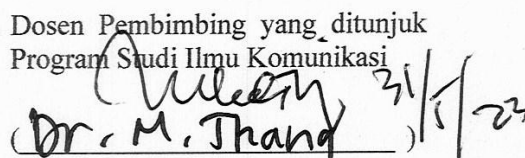 Dosen Pembimbing yang ditunjuk
Program Studi Ilmu Komunikasi
31/5/23
(Dr. M. )